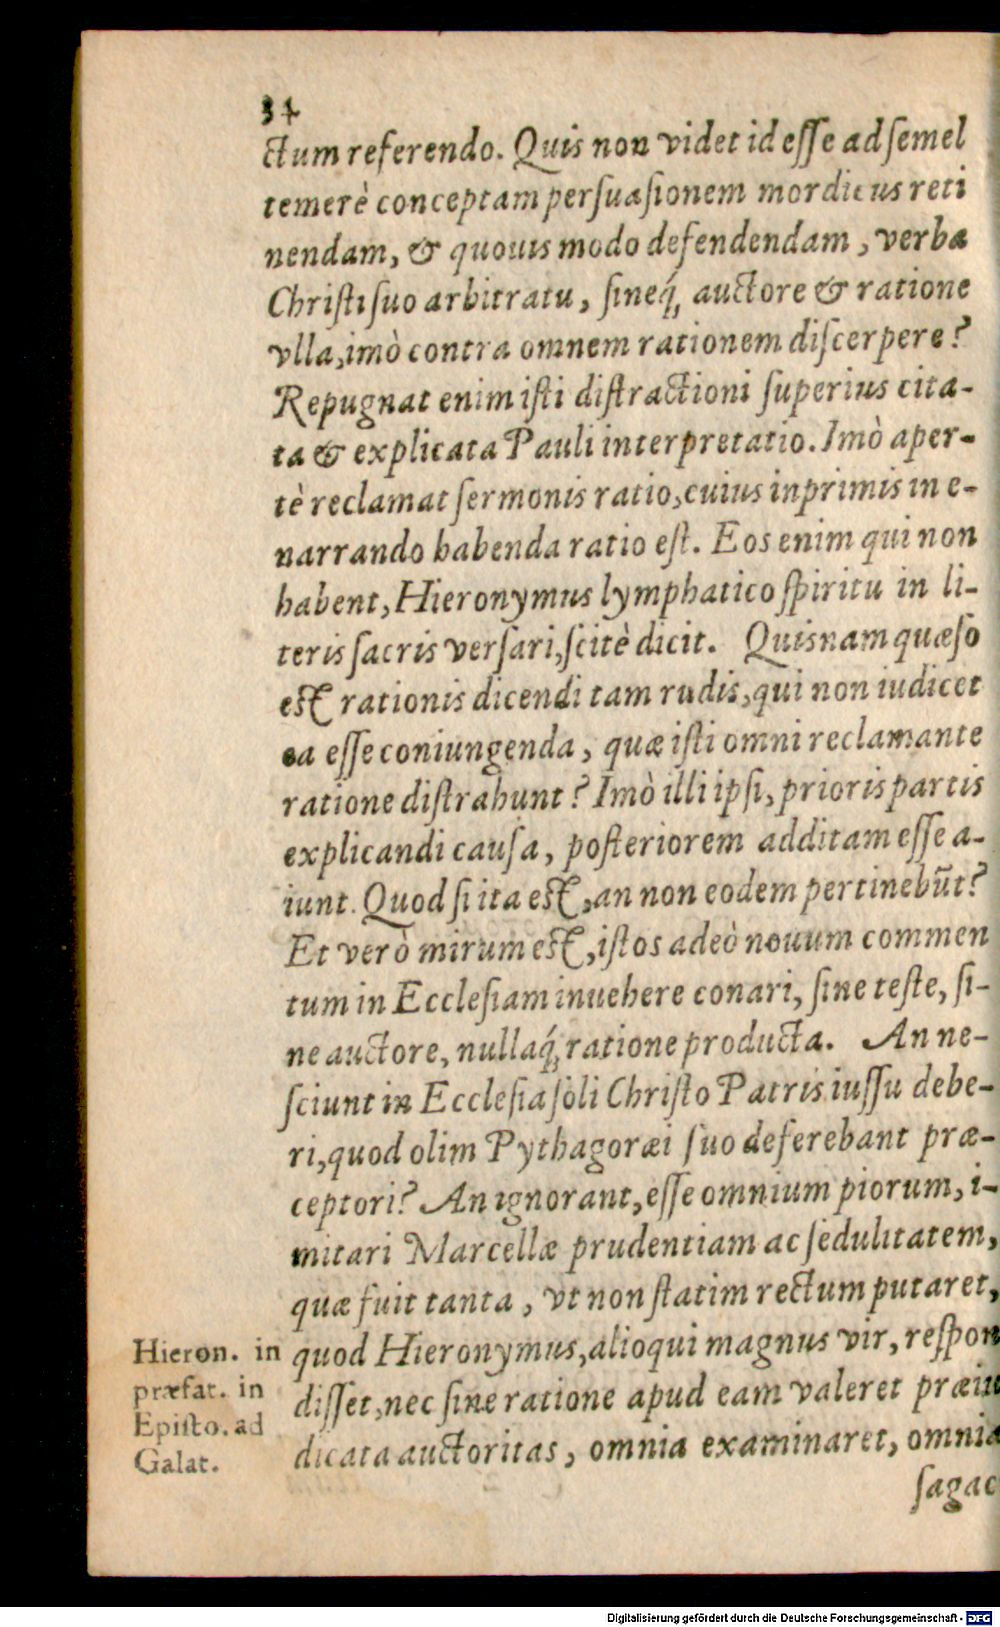 34
ctum referendo. Quis non videt id eſſe ad ſemel
temerè conceptam perſuaſionem mordicus reti
nendam, & quouis modo defendendam, verba
Chriſti ſuo arbitratu, ſineq́; auctore & ratione
vlla, imò contra omnem rationem diſcerpere?
Repugnat enim iſti diſtractioni ſuperius cita-
ta & explicata Pauli interpretatio. Imò aper-
tè reclamat ſermonis ratio, cuius inprimis in e-
narrando habenda ratio eſt. Eos enim qui non
habent, Hieronymus lymphatico ſpiritu in li-
teris ſacris verſari, ſcitè dicit. Quisnam quæſo
eſt rationis dicendi tam rudis, qui non iudicet
ea eſſe coniungenda, quæ iſti omni reclamante
ratione diſtrahunt? Imò illi ipſi, prioris partis
explicandi cauſa, poſteriorem additam eſſe a-
iunt. Quod ſi ita eſt, an non eodem pertinebūt?
Et verò mirum eſt, iſtos adeò nouum commen
tum in Eccleſiam inuehere conari, ſine teſte, ſi-
ne auctore, nullaq́; ratione producta. An ne-
ſciunt in Eccleſia ſoli Chriſto Patris iuſſu debe-
ri, quod olim Pythagoræi ſuo deferebant præ-
ceptori? An ignorant, eſſe omnium piorum, i-
mitari Marcellæ prudentiam ac ſedulitatem,
quæ fuit tanta, vt non ſtatim rectum putaret,
quod Hieronymus, alioqui magnus vir, reſpon
diſſet, nec ſine ratione apud eam valeret præiu
dicata auctoritas, omnia examinaret, omnia
ſagac
Hieron. in
præfat. in
Epiſto. ad
Galat.
Digitalisierung gefördert durch die Deutsche Forschungsgemeinschaft - DFG